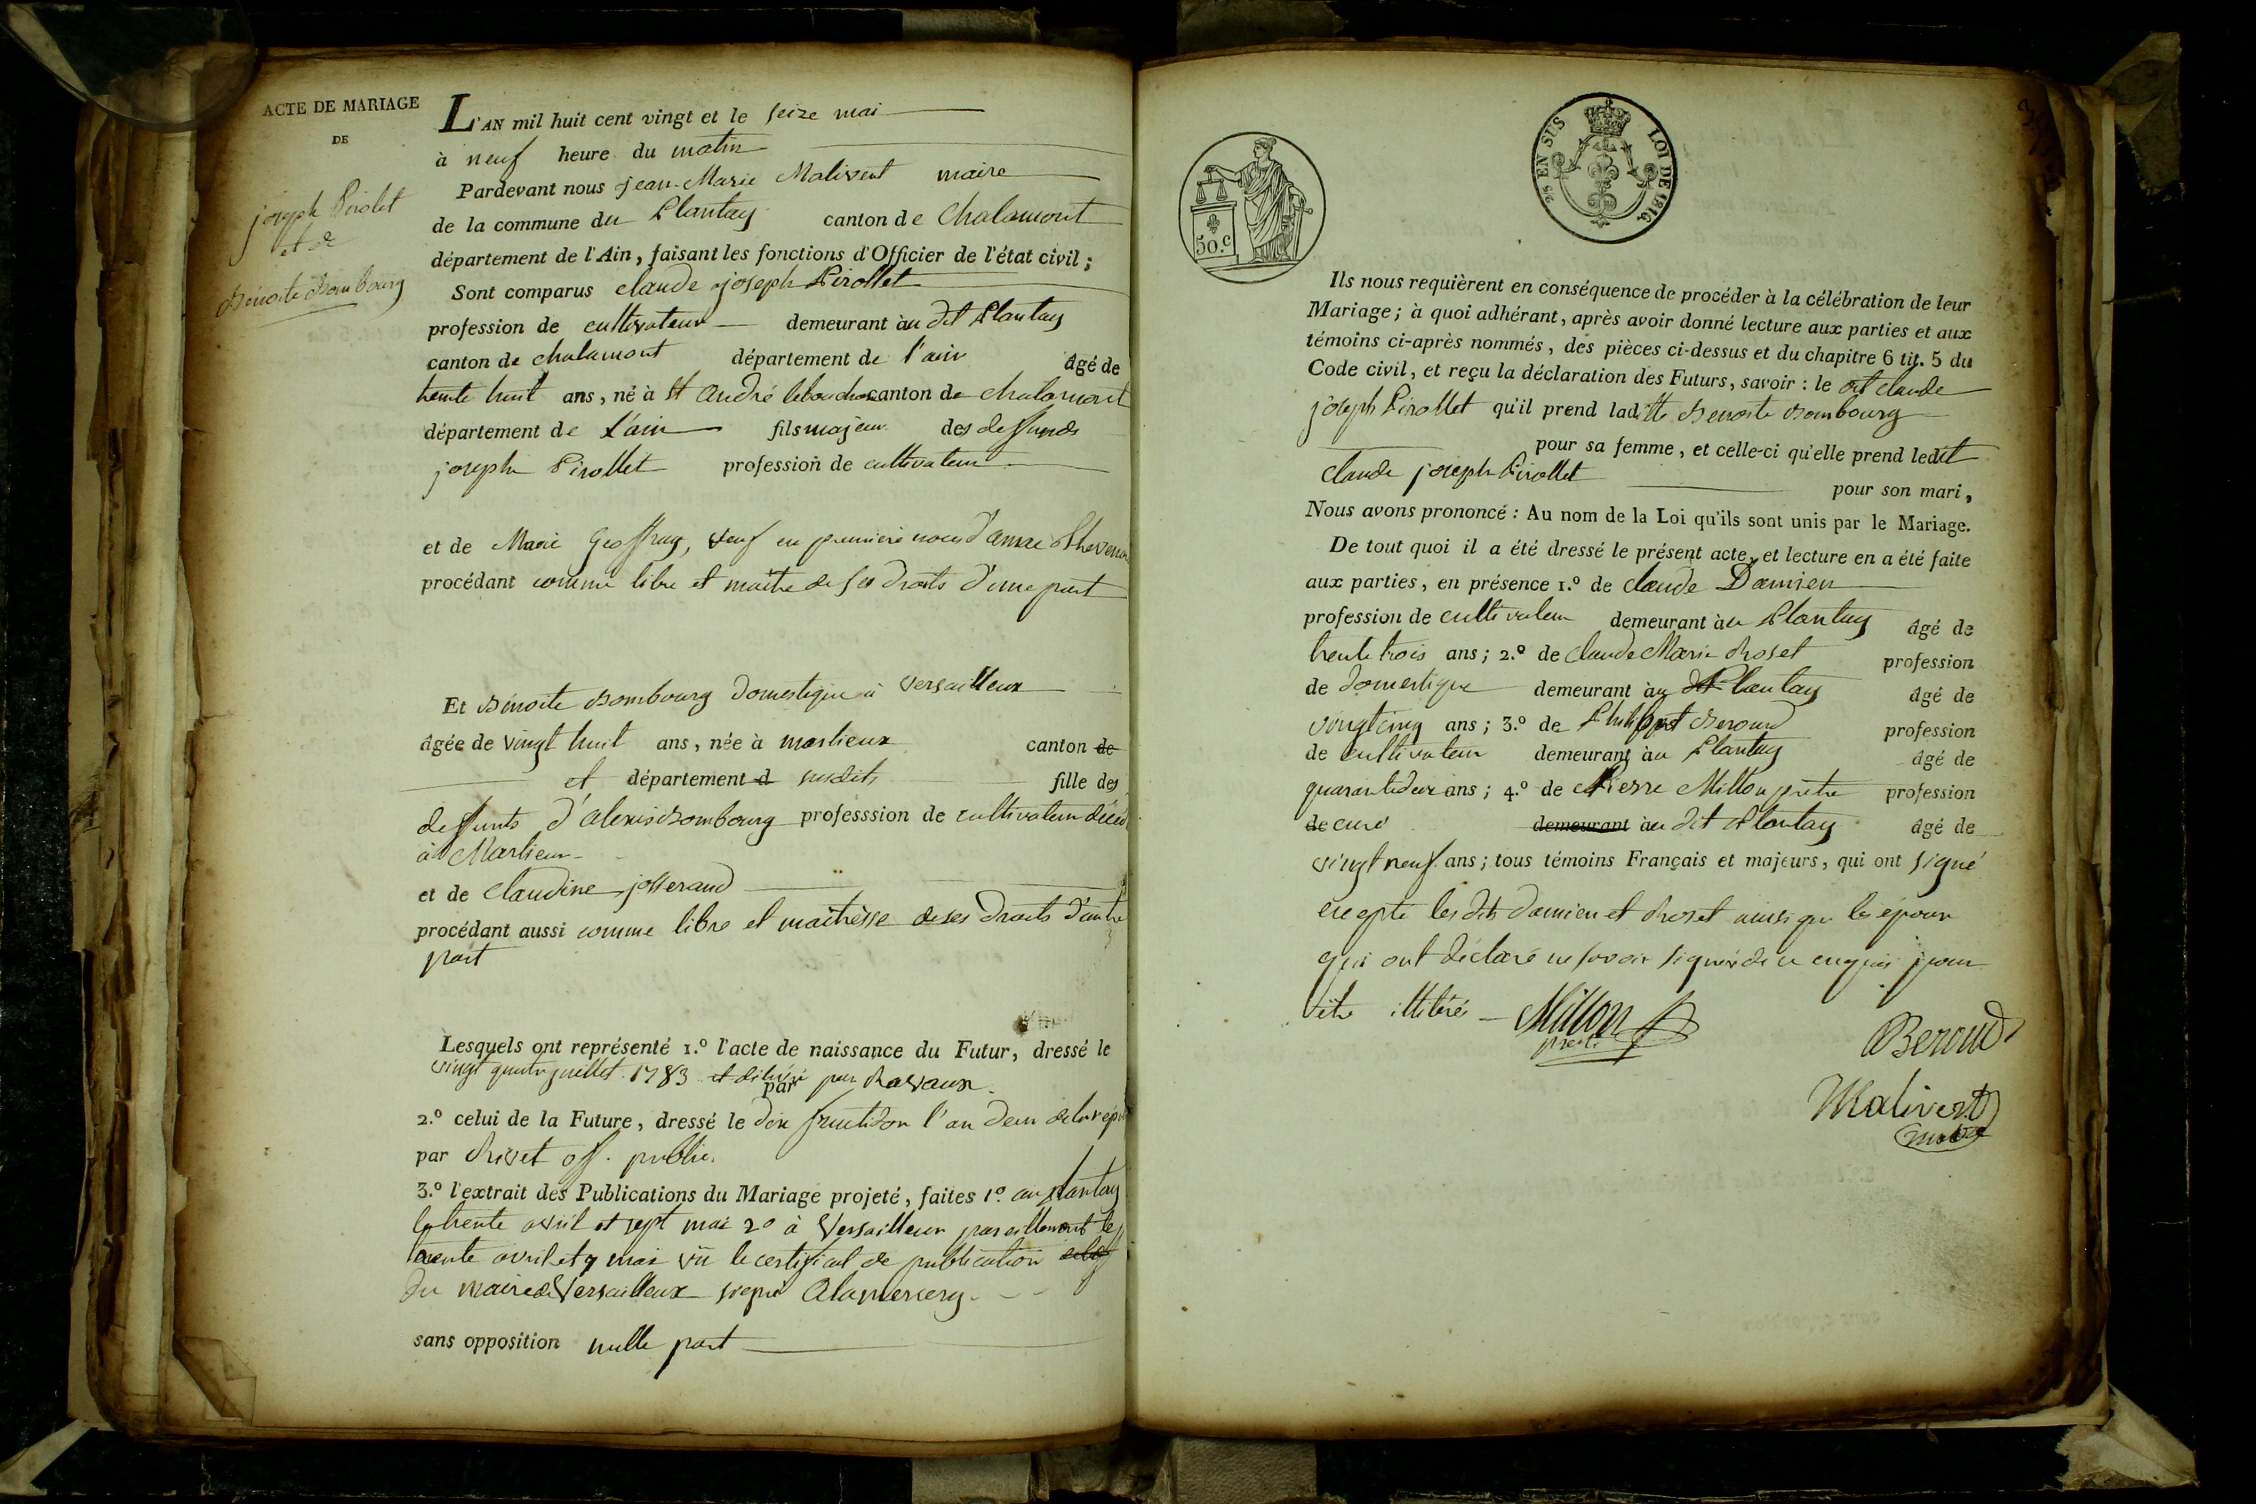 ACTE DE MARIAGE
DE
joseph Pirolet
et de
Benoite Bombourg
L'AN mil huit cent vingt et le seize mai
à neuf heure du matin
Pardevant nous jean-Marie Malivert maire
de la commune du Plantay canton de Chalamont
département de l'Ain, faisant les fonctions d'Officier de l'état civil;
Sont comparus claude joseph Pirollet
profession de cultivateur demeurant à au dit Plantay
canton de chalamont département de l'ain âgé de
trente huit ans, né à St andré le bouchoux canton de chalamont
département de L'ain fils majeur des deffunds
joseph Pirollet profession de cultivateur
et de Marie Geoffray, veuf en premiere noces d'anne Thevenon
procédant comme libre et maitre de ses droits d'une part
Et Benoite Bombourg domestique à Versailleux
âgée de vingt huit ans, née à marlieux canton de
et département d susdits fille des
deffunts d'alexis Bombourg professsion de cultivateur décédé
à Marlieux
et de Claudine josserand
procédant aussi comme libre et maitresse de ses droits d'autre
part
Lesquels ont représenté 1.º l'acte de naissance du Futur, dressé le
vingt quatre juillet 1783 et délivré par par Ravaux
2.º celui de la Future, dressé le dix fructidor l'an deux de la répu
par Rivet off. public.
3.º l'extrait des Publications du Mariage projeté, faites 1º. au plantay
le trente avril et sept mai 2º à Versailleux pareillement le
trente avril et 7 mai vû le certificat de publication
du maire de Versailleux signé Alamercery
sans opposition nulle part
50.c
25 EN SUS LOI DE 1816
Ils nous requièrent en conséquence de procéder à la célébration de leur
Mariage; à quoi adhérant, après avoir donné lecture aux parties et aux
témoins ci-après nommés, des pièces ci-dessus et du chapitre 6 tit. 5 du
Code civil, et reçu la déclaration des Futurs, savoir : le dit claude
joseph Pirollet qu'il prend laditte Benoite Bombourg
pour sa femme, et celle-ci qu'elle prend ledit
Claude joseph Pirollet pour son mari,
Nous avons prononcé : Au nom de la Loi qu'ils sont unis par le Mariage.
De tout quoi il a été dressé le présent acte, et lecture en a été faite
aux parties, en présence 1.º de claude Damien
profession de cultivateur demeurant à au Plantay âgé de
trente trois ans; 2.º de claude Marie Roset profession
de domestique demeurant à au dit Plantay âgé de
vingt cinq ans; 3.º de Philippe Beroud profession
de cultivateur demeurant à au Plantay âgé de
quarante deux ans; 4.º de Pierre Millon prêtre profession
de curé demeurant à au dit Plantay âgé de
vingt neuf ans; tous témoins Français et majeurs, qui ont signé
excepté les dits damien et Roset ainsi que les époux
qui ont déclaré ne savoir signer de ce enquis pour
être illitéré
Millon
prêtre
Beroud
Malivert
maire